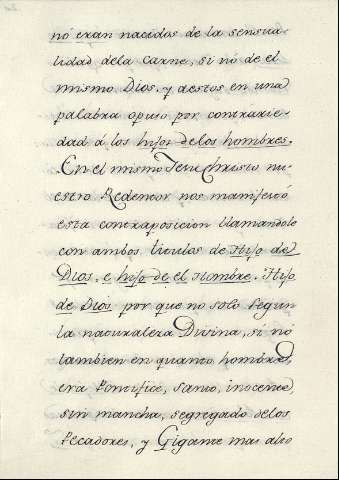 nó eran nacidos de la sensua-
lidad dela Carne, si nó de el
mismo Dios, y aestos en una
palabra opuso por contrarie-
dad á los hijos delos hombres.
En el mismo Jesu Christo nu-
estro Redemtor nos manifestó
esta contraposicion llamandole
con ambos titulos de Hijo de
Dios, e hijo de el Hombre. Hijo
de Dios por que no solo segun
la naturaleza Divina, si nó
tambien en quanto hombre,
era Pontifice, santo, inocente
sin mancha, segregado delos
Pecadores, y Gigante mas alto